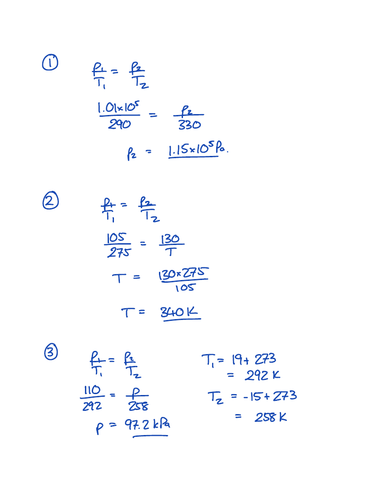 ①
p₁/T₁ = p₂/T₂
1.01×10⁵/290 = p₂/330
p₂ = 1.15×10⁵ Pa.
②
p₁/T₁ = p₂/T₂
105/275 = 130/T
T = 130×275/105
T = 340K
③
p₁/T₁ = p₂/T₂
110/292 = p/258
p = 97.2 kPa
T₁ = 19+273
= 292 K
T₂ = -15+273
= 258K